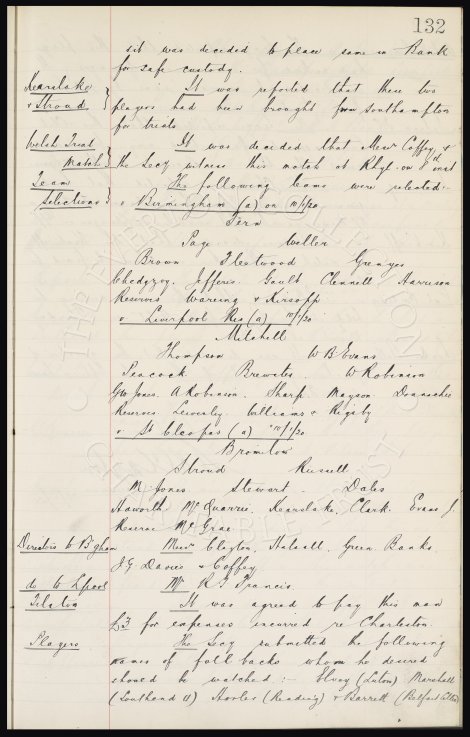 132
sit was decided to place same in Bank
for safe custody.
Kearslake
& Stroud
It was reported that these two
players had been brought from Southampton
for trials
Welsh Trial
Match
It was decided that Messrs Coffey &
the Secy witness this match at Rhyl on 8th inst
Team
Selections
The following teams were selected:-
v Birmingham (a) on 10/1/20
Fern
Page Weller
Brown Fleetwood Grenyer
Chedgzoy. Jefferis. Gault Clennell Harrison
Reserves Wareing & Kirsopp
v Liverpool Res (a) 10/1/20
Mitchell
Thompson W B Evans
Peacock Brewster. W Robinson
Geo Jones. A Robinson. Sharp. Mayson Donnachie
Reserves Leversley Williams & Rigsby
v St Cleopas (a) 10/1/20
Bromilow
Stroud Russell
M Jones Stewart Dales
Haworth McQuarrie. Kearslake. Clark. Evans J.
Reserve McGrae
Directors to B'gham
Messrs Clayton, Halsall, Green Banks.
J G Davies & Coffey
do to L'pool
Mr R T Francis
It was agreed to pay this man
£3 for expenses incurred re Charleston.
Players
The Secy submitted the following
names of full backs whom he desired
should be watched :- (Luton) Marshall
(Southend U) (Reading) & Barrett (Belfast
THE EVERTON COLLECTION
CHARITABLE TRUST